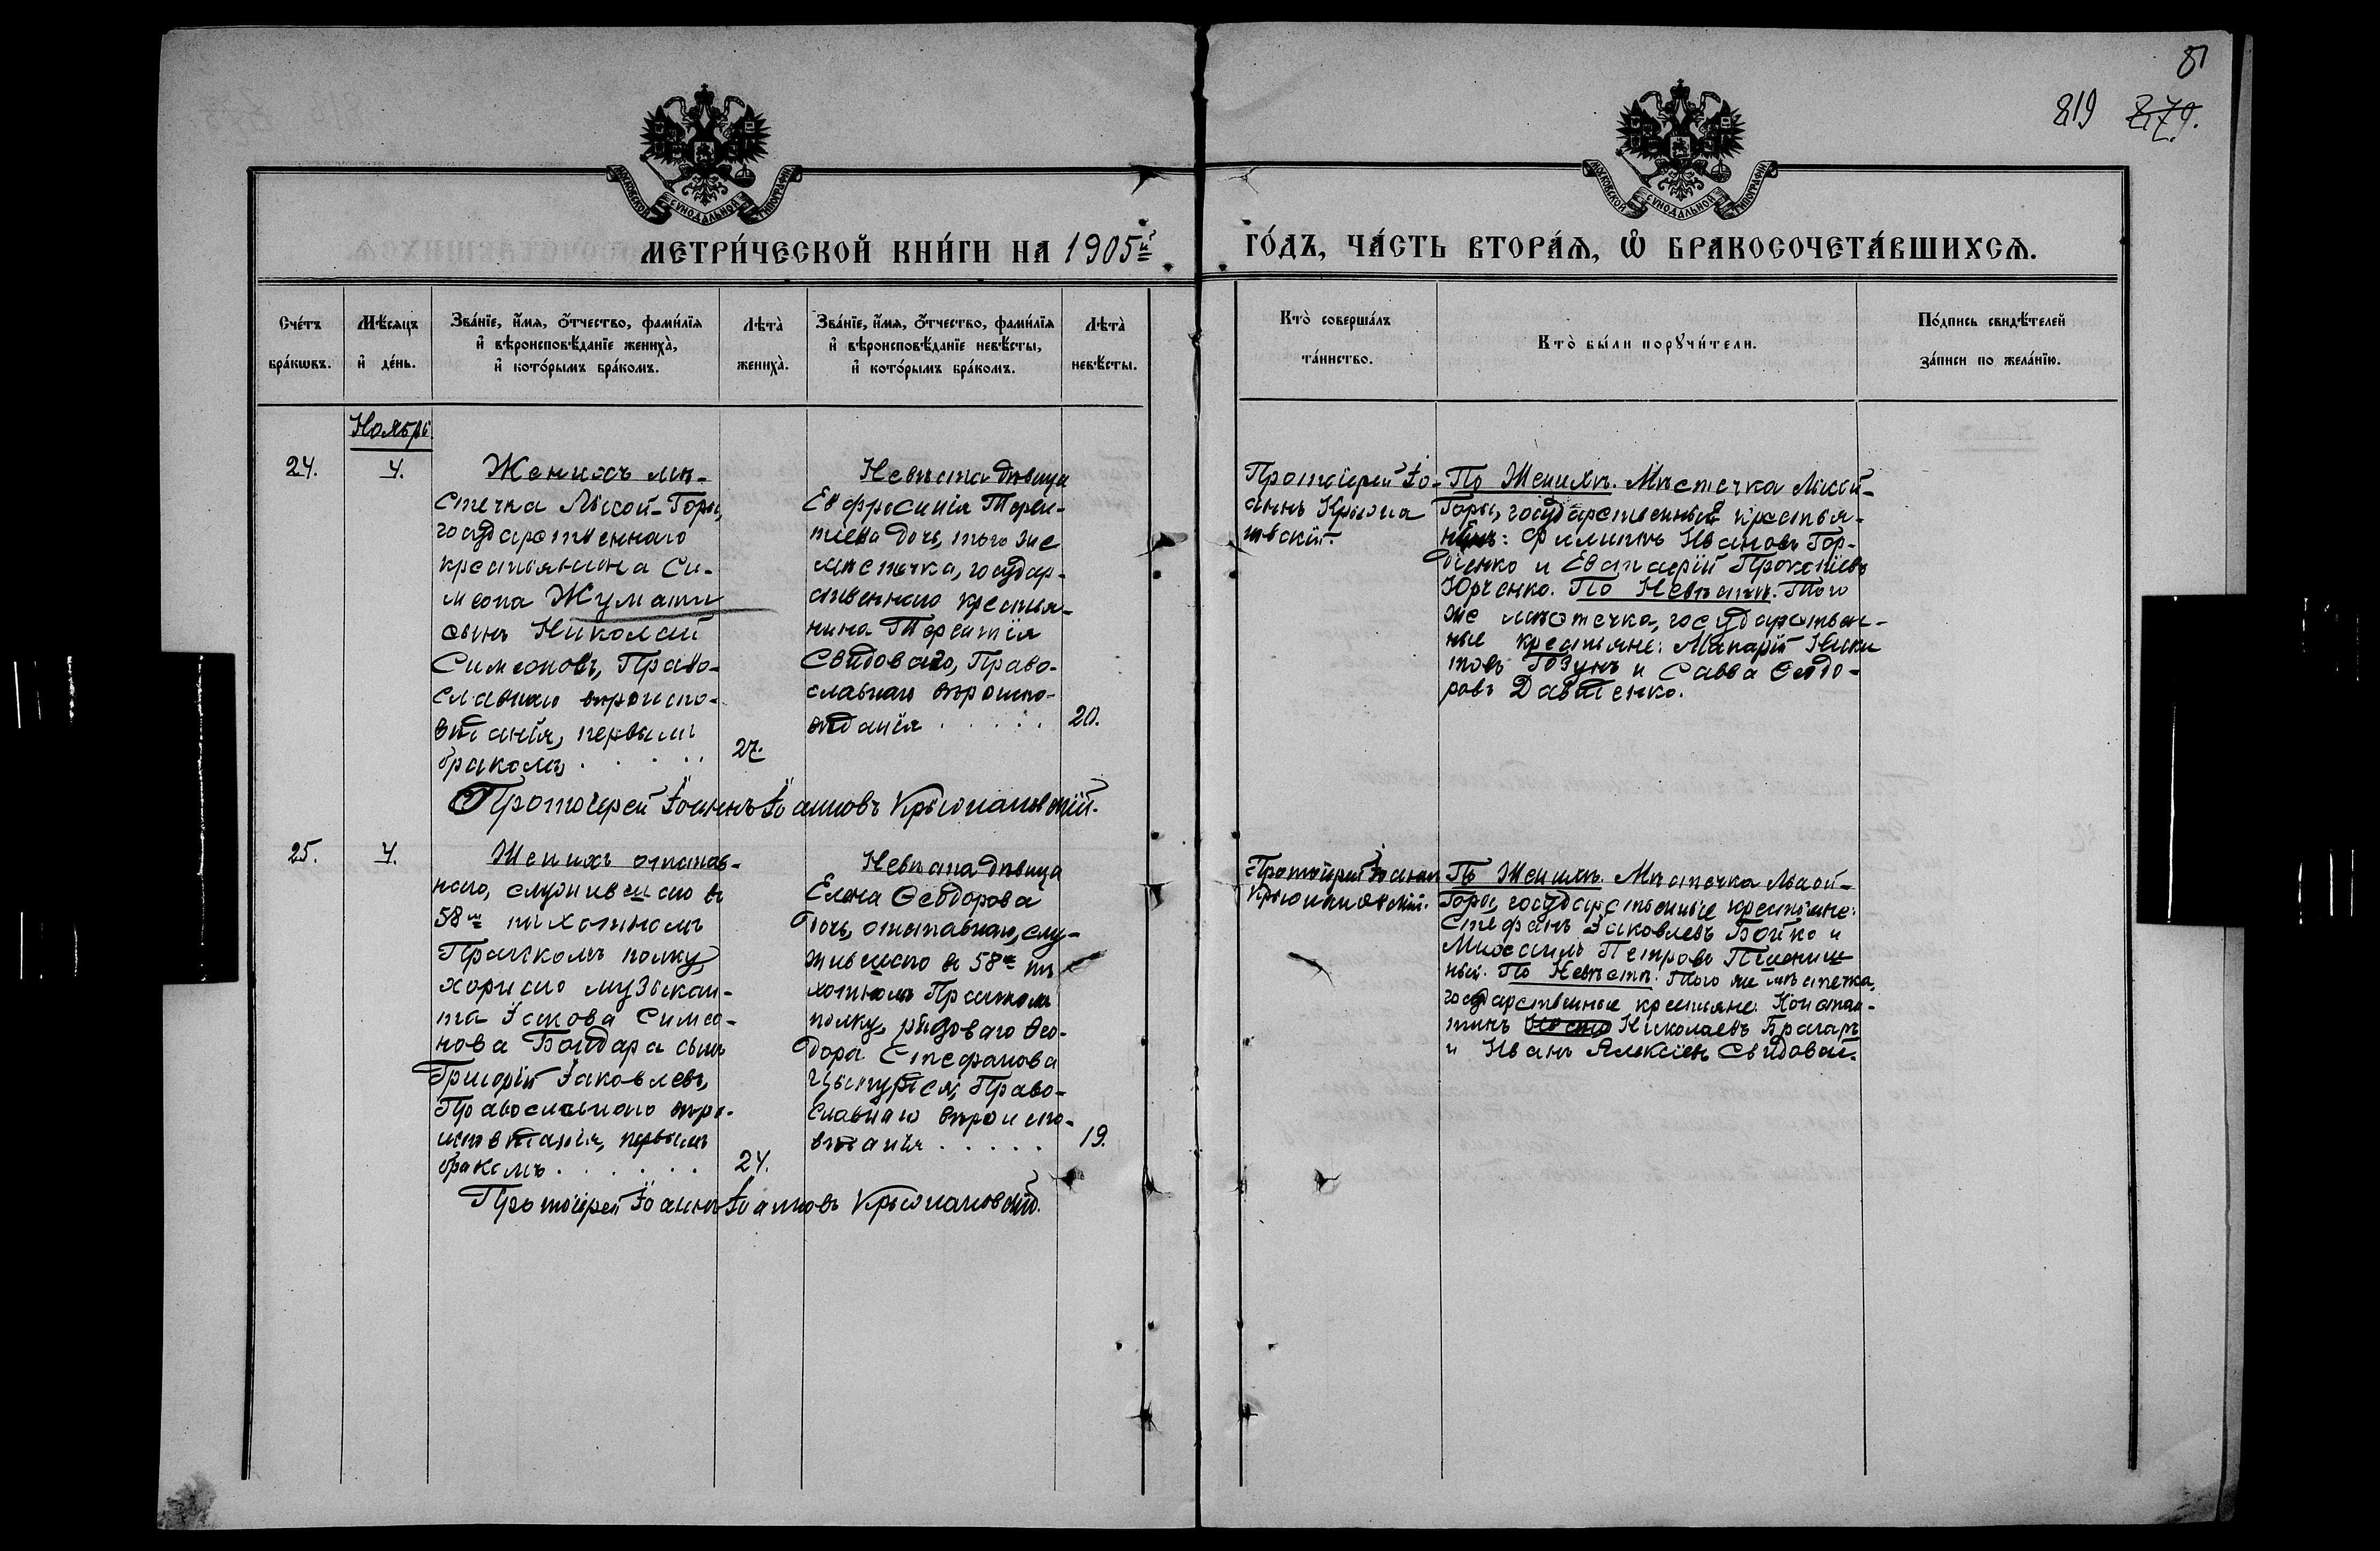 81
819 279.
МОСКОВСКОЙ СѴНОДАЛЬНОЙ ТИПОГРАФІИ
МОСКОВСКОЙ СѴНОДАЛЬНОЙ ТИПОГРАФІИ
МЕТРИ́ЧЕСКОЙ КНИ́ГИ НА 1905й
ГО́ДЪ, ЧА́СТЬ ВТОРА́Ѧ, Ѽ БРАКОСОЧЕТА́ВШИХСѦ.
Сче́тъ бра́кѡвъ.
Мѣ́сяцъ и҆ де́нь.
Зва́нїе, и҆́мя, ѻ҆́тчество, фами́лїя
и҆ вѣроисповѣ́данїе жениха̀,
и҆ кото́рымъ бра́комъ.
Лѣта̀ жениха̀.
Зва́нїе, и҆́мя, ѻ҆́тчество, фами́лїя
и҆ вѣроисповѣ́данїе невѣ́сты,
и҆ кото́рымъ бра́комъ.
Лѣта̀ невѣ́сты.
Кто̀ соверша́лъ та́инство.
Кто̀ бы́ли порꙋчи́тели.
По́дпись свидѣ́телей
за́писи по жела́нїю.
Ноябрь
24.
4.
Женихъ мѣ-
стечка Лысой-Горы,
государственнаго
крестьянина Си-
меона Жумати
сынъ Николай
Симеоновъ, Право-
славнаго вѣроиспо-
вѣданія, первымъ
бракомъ . . . . .
27.
Невѣста дѣвица
Евфросинія Терен-
тіева дочь, того же
мѣстечка, государ-
ственнаго крестья-
нина Терентія
Свидоваго, Право-
славнаго вѣроиспо-
вѣданія . . . . .
20.
Протоіерей Іо-
аннъ Крыжа
новскій.
По Женихѣ. Мѣстечка Лысой-
Горы, государственный крестья-
нинъ: Филиппъ Ивановъ Гор-
дѣенко и Евстафій Прокопіевъ
Юрченко. По Невѣстѣ. Того
же мѣстечка, государствен-
ные крестьяне: Макарій Ники
товъ Гозунъ и Савва Ѳеодо-
ровъ Давиденко.
Протоіерей Іоаннъ Іоанновъ Крыжановскій.
25.
4.
Женихъ отстав-
наго, служившаго въ
58м пѣхотномъ
Прагскомъ полку,
хорнаго музыкан-
та Іакова Симео-
нова Бондара сынъ
Григорій Іаковлевъ,
Православнаго вѣро-
исповѣданія, первымъ
бракомъ . . . . . .
24.
Невѣста дѣвица
Елена Ѳеодорова
дочь, отставнаго, слу-
жившаго въ 58м пѣ
хотномъ Прагскомъ
полку, рядоваго Ѳео-
дора Стефанова
Право-
славнаго вѣроиспо-
вѣданія . . . . .
19.
Протоіерей Іоаннъ
Крыжановскій.
По Женихѣ. Мѣстечка Лысой-
Горы, государственные крестьяне:
Стефанъ Іаковлевъ Бойко и
Петровъ Пшенич
ный. По Невѣстѣ. Того же мѣстечка,
государственные крестьяне: Констан-
тинъ Николаевъ Брагарь
и Иванъ Алексіевъ Свидовый.
Протоіерей Іоаннъ Іоанновъ Крыжановскій.